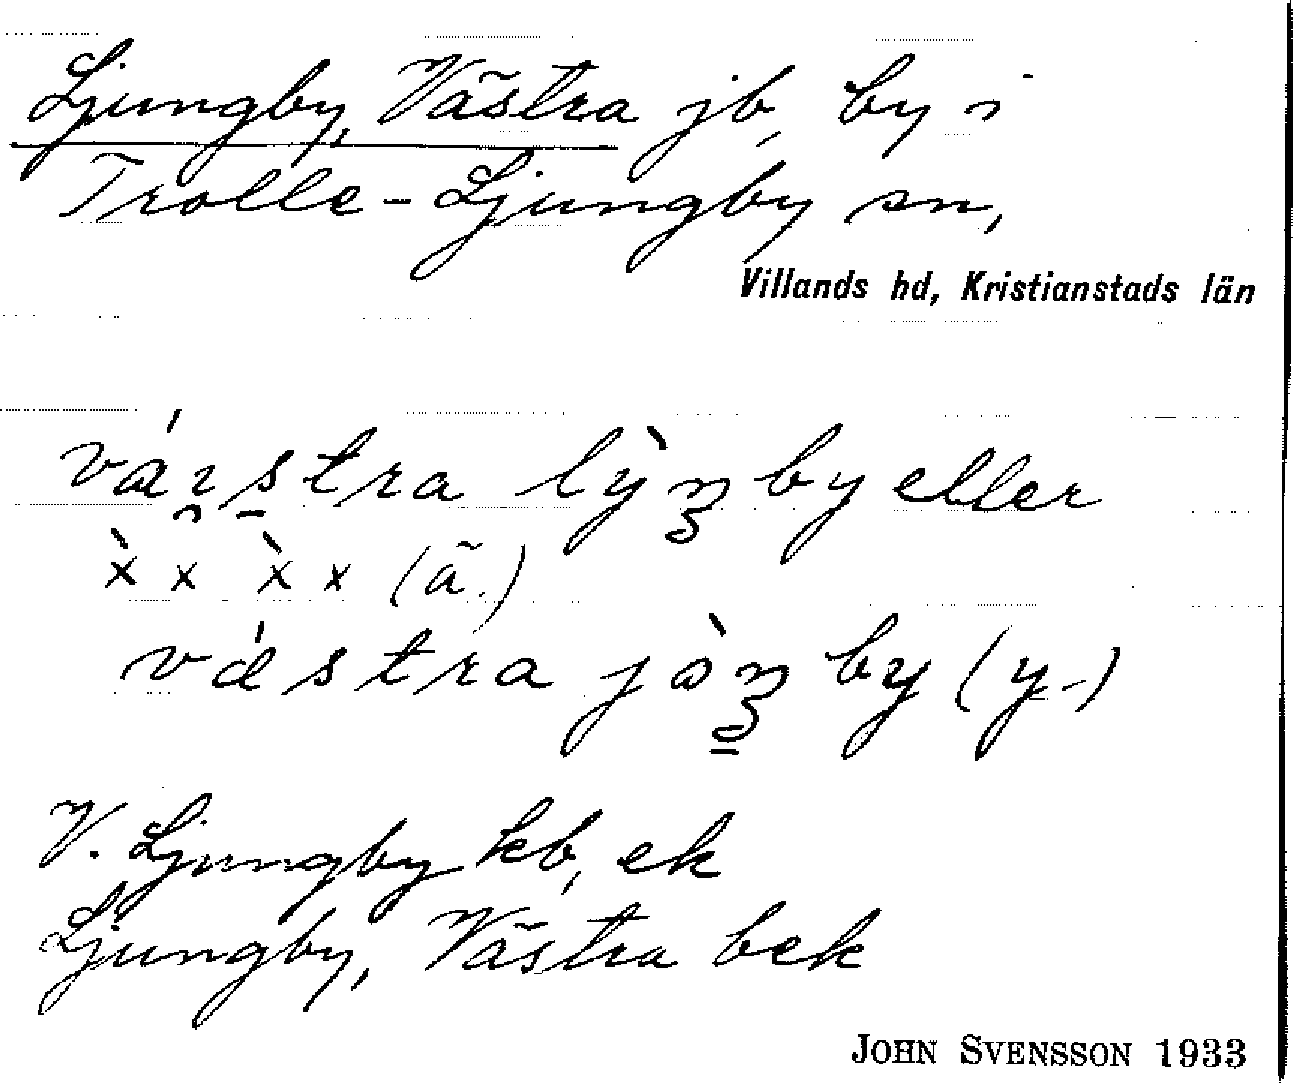 Ljungby, Västra jb, by i
Trolle-Ljungby sn,
Villands hd, Kristianstads län
västra by eller
x̀ x x̀ x (ä.)
västra by (y-)
V. Ljungby kb, ek
Ljungby, Västra bek
JOHN SVENSSON 1933